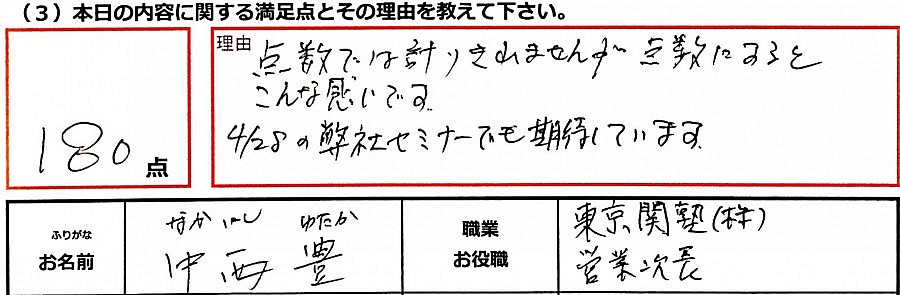 (3)本日の内容に関する満足点とその理由を教えて下さい。
180点
理由 点数では計りきれませんが点数にすると
こんな感じです
4/28の弊社セミナーでも期待しています
ふりがな なかにし ゆたか
お名前 中西 豊
職業
お役職
東京関塾(株)
営業次長